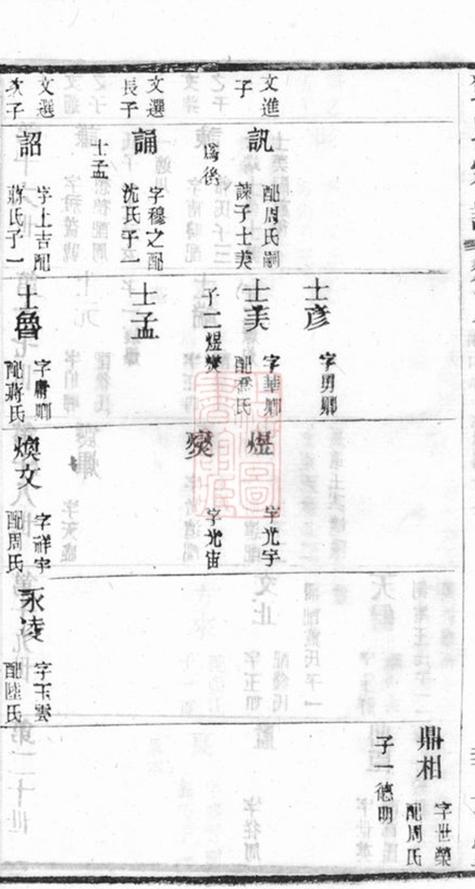 文進
子
訊
配周氏嗣
諫子士美
爲後
文選
長子
誦
字穆之配
沈氏子一
士孟
文選
次子
詔
字上吉配
蔣氏子一
士彥
字勇卿
士美
字華卿
配 氏
子二煜爕
士孟
士魯
字庸卿
配蔣氏
煜
字光宇
爕
字光宙
煥文
字祥宇
配周氏
永凌
字玉雲
配陸氏
鼎相
字世榮
配周氏
子一德明